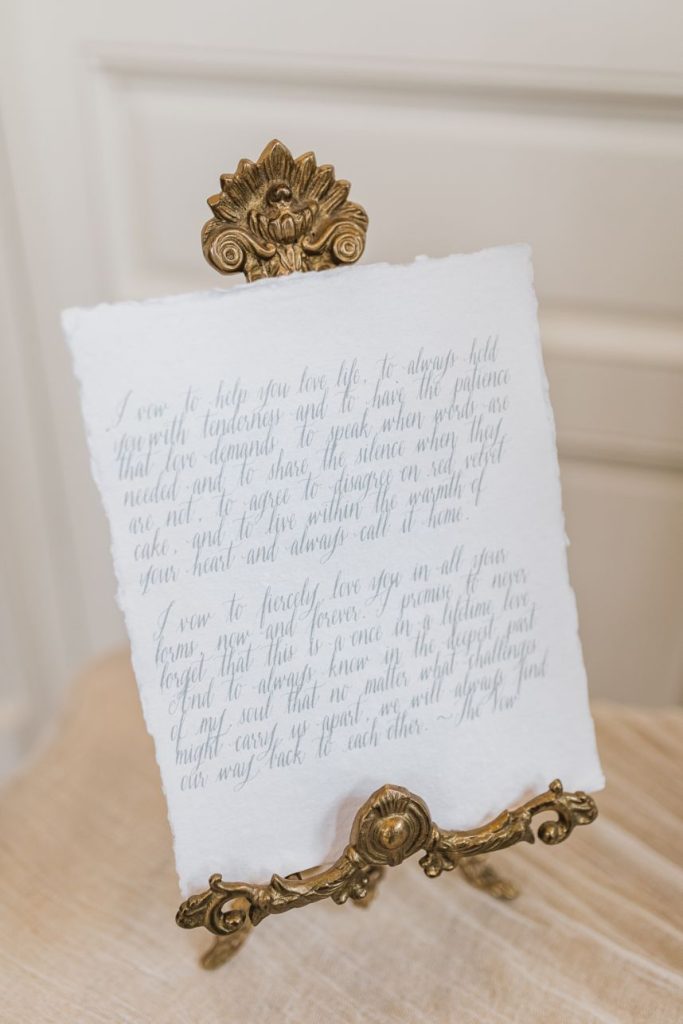 I vow to help you love life, to always hold
you with tenderness and to have the patience
that love demands, to speak when words are
needed and to share the silence when they
are not, to agree to disagree on red velvet
cake, and to live within the warmth of
your heart and always call it home.
I vow to fiercely love you in all your
forms, now and forever. I promise to never
forget that this is a once in a lifetime love
And to always know in the deepest part
of my soul that no matter what challenges
might carry us apart, we will always find
our way back to each other. ~ The Vow